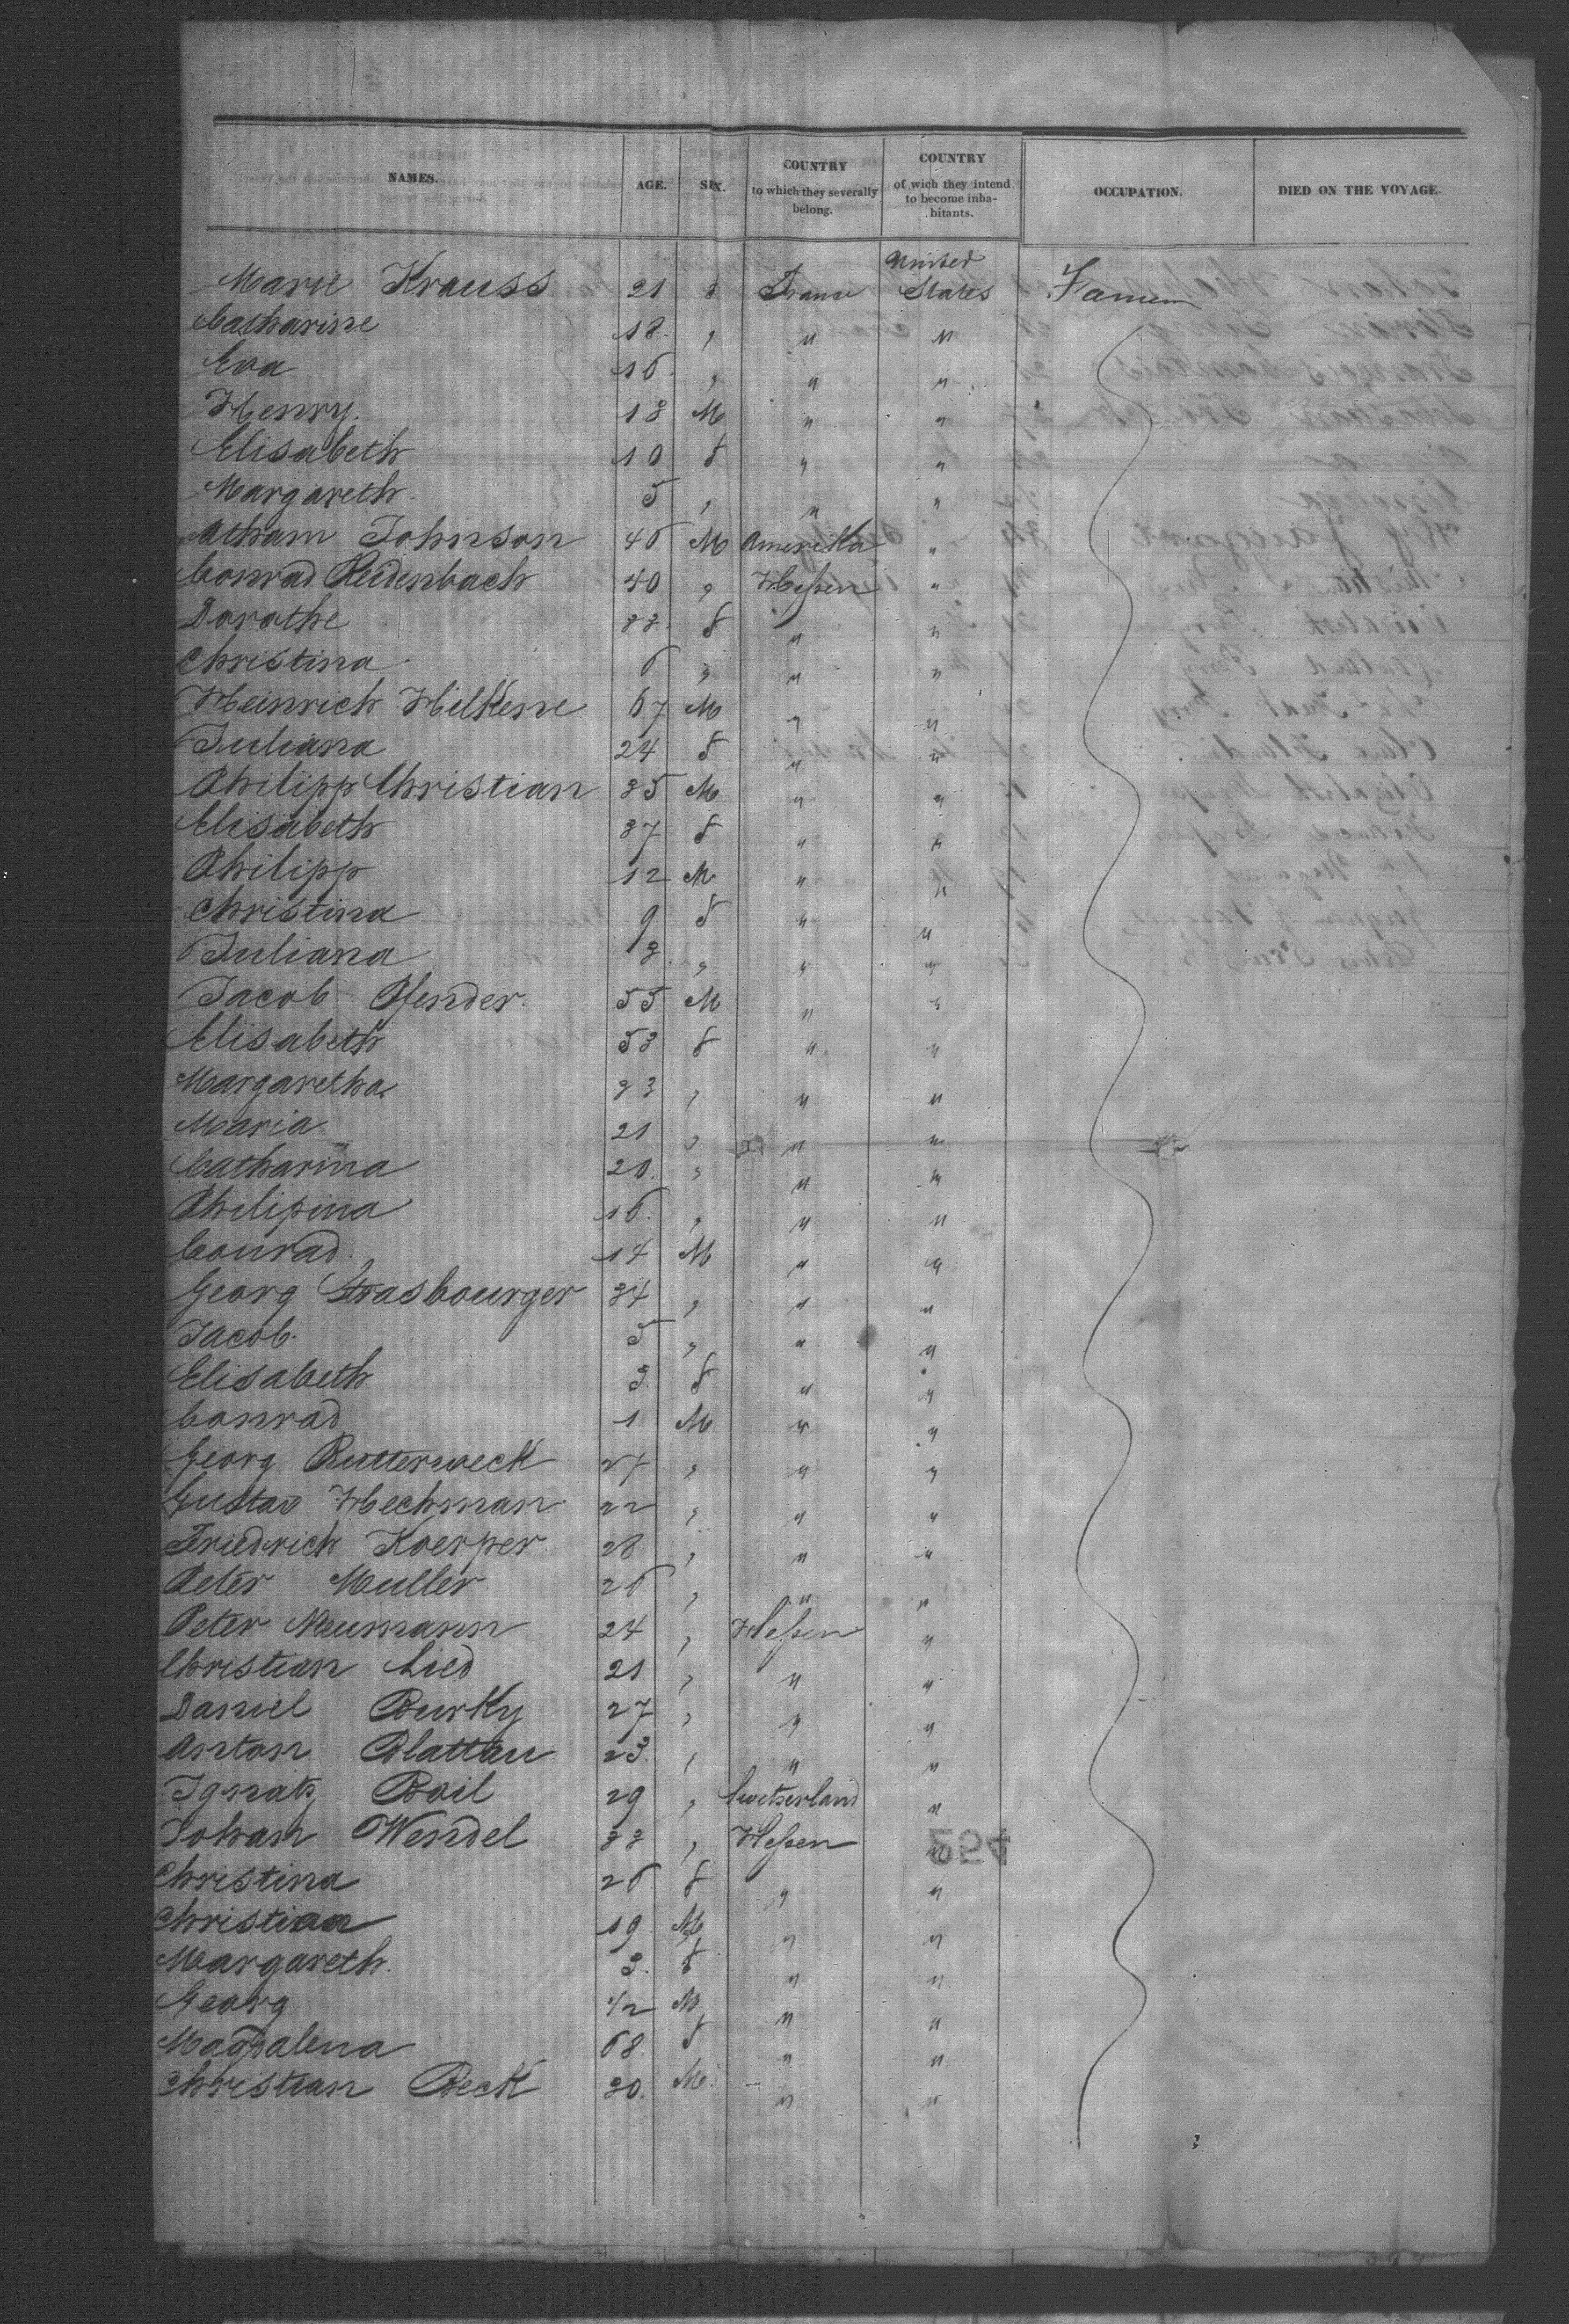 NAMES. AGE. SEX. COUNTRY to which they severally belong. COUNTRY of wich they intend to become inhabitants. OCCUPATION. DIED ON THE VOYAGE.
Marie Krauss 21 f France United States Farmer
Catharine 18 " " "
Eva 16 " " "
Henry 13 M " "
Elisabeth 10 f " "
Margareth 5 " " "
Atham Johnson 46 M Amerika "
Conrad Reidenbach 40 " Hessen "
Dorathe 33 f " "
Christina 6 " " "
Heinrich Hilkene 67 M " "
Juliana 24 f " "
Philipp Christian 35 M " "
Elisabeth 37 f " "
Philipp 12 M " "
Christina 9 f " "
Juliana 3 " " "
Jacob Pfender 55 M " "
Elisabeth 53 f " "
Margaretha 23 " " "
Maria 21 " " "
Catharina 20 " " "
Philipina 16 " " "
Conrad 14 M " "
Georg Strasbourger 34 " " "
Jacob 5 " " "
Elisabeth 3 f " "
Conrad 1 M " "
Georg Butterweck 27 " " "
Gustav Hechman 22 " " "
Friedrich Koerper 28 " " "
Peter Muller 26 " " "
Peter Neumann 24 " Hessen "
Christian Lied 21 " " "
Daniel Burky 27 " " "
Anton Blattau 23 " " "
Ignatz Boil 29 " Switserland "
Johan Wendel 33 " Hessen "
Christina 26 f " "
Christian 19 M " "
Margareth 3 f " "
Georg 1/2 M " "
Magdalena 68 f " "
Christian Beck 30 M " "